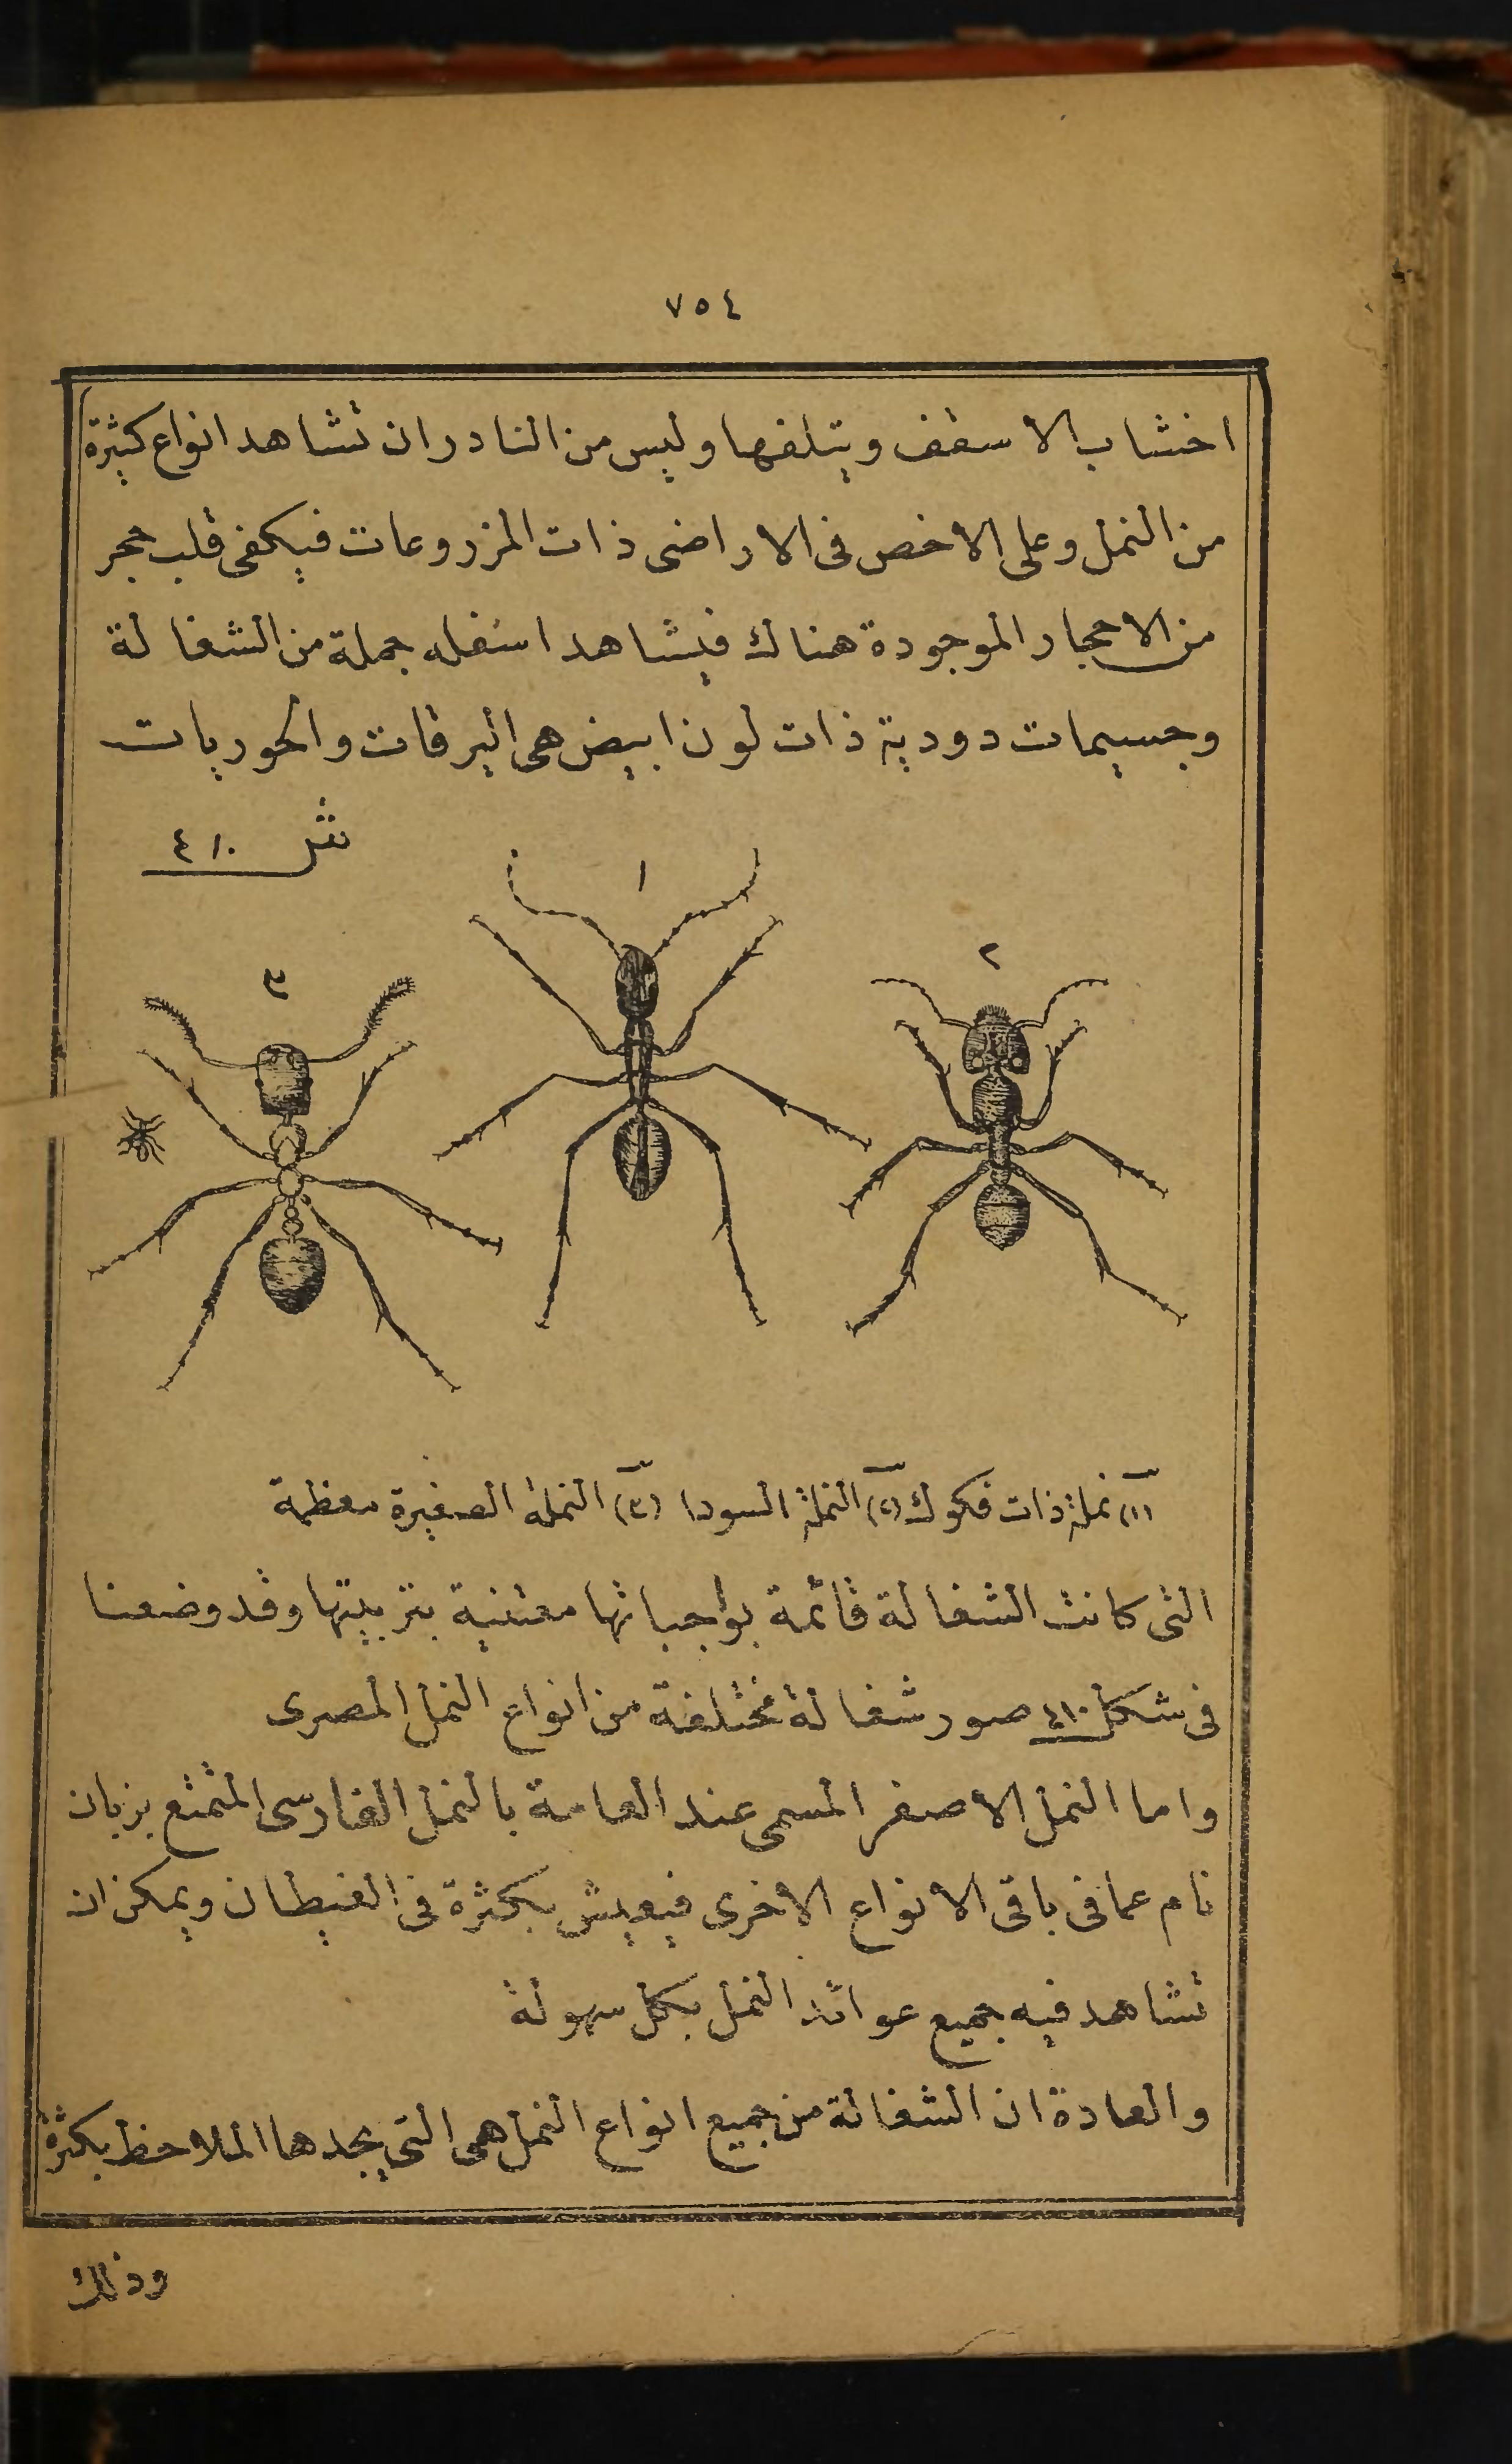 ٧٥٤
اخشاب الاسقف ويتلفها وليس من النادر ان تشاهد انواع كثيرة
من النمل وعلى الاخص فى الاراضى ذات المزروعات فيكفى قلب حجر
من الاحجار الموجودة هناك فيشاهد اسفله جملة من الشغالة
وجسيمات دودية ذات لون ابيض هى اليرقات والحوريات
شل ٤١٠
١
٢
٣
(١) نملة ذات فكوك (٢) النملة السودا (٣) النملة الصغيرة معظمة
التى كانت الشغالة قائمة بواجباتها معتنية بتربيتها وقد وضعنا
فى شكل ٤١٠ صور شغالة مختلفة من انواع النمل المصرى
واما النمل الاصفر المسمى عند العامة بالنمل الفارسى المتمتع بزبان
تام عما فى باقى الانواع الاخرى فيعيش بكثرة فى الغيطان ويمكن ان
تشاهد فيه جميع عوائد النمل بكل سهولة
والعادة ان الشغالة من جميع انواع النمل هى التى يجدها الملاحظ بكثرة
وذلك